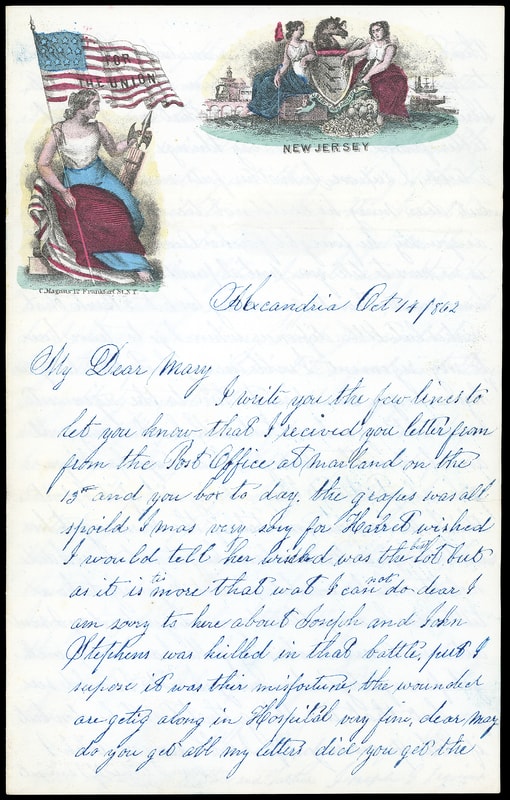 FOR
THE UNION
NEW JERSEY
C. Magnus 12 Frankfort St. N.Y.
Alexandria Oct 14/862
My Dear Mary
I write you the few lines to
let you know that I recived you letter from
from the Post Office at on the
13th and you box to day. the grapes was all
spoild I was very sory for Harret wished
I would tell her was the best but
as it is tis more that wat I can not do dear I
am sorry to here about Joseph and John
Stephens was killed in that battle, put I
supose it was thir misfortune, the wounded
are getig along in Hospital very fine, dear Mary
do you get all my letters did you get the